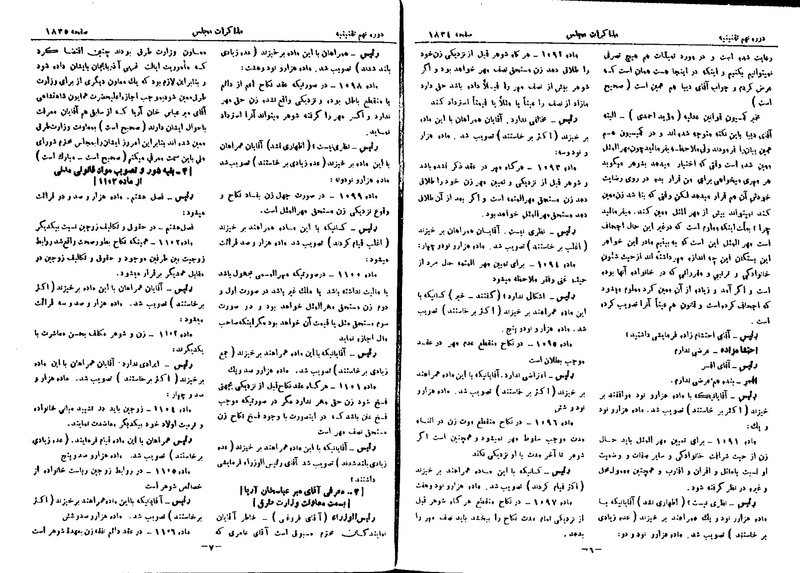 دوره نهم تقنینیه
مذاکرات مجلس
صفحه ۱۸۳۴
رعایت شده است و در مورد تعلیقات هم هیچ تصرفی
نمیتوانیم بکنیم و اینکه در اینجا هست همان است که
عرض کردم و جواب آقای دیبا هم همین است (صحیح
است)
مخبر کمیسیون قوانین عدلیه (مؤید احمدی) – البته
آقای دیبا باین نکته متوجه شده اند و در کمیسیون هم
رئیس – آقای احتشام زاده فرمایشی داشتید؟
احتشام زاده – عرضی ندارم
رئیس – آقای افسر
افسر – بنده هم عرضی ندارم.
رئیس – آقایانیکه با ماده هزارو نود موافقند بر
خیزند (اکثر برخاستند) تصویب شد. ماده هزارو نود
و یک:
ماده ۱۰۹۱ – برای تعیین مهر المثل باید حال
زن از حیث شرافت خانوادگی و سایر صفات و وضعیت
او نسبت باماثل و اقران و اقارب و همچنین معمول محل
و غیره در نظر گرفته شود.
رئیس – نظری نیست؟ (اظهاری نشد) آقایانیکه با
ماده هزارو نود و یک همراهند بر خیزند (عده زیادی
برخاستند) تصویب شد. ماده هزارو نود و دو:
ماده ۱۰۹۲ – هر گاه شوهر قبل از نزدیکی زن خود
را طلاق دهد زن مستحق نصف مهر خواهد بود و اگر
شوهر بیش از نصف مهر را قبلاً داده باشد حق دارد
مازاد از نصف را عیناً یا مثلاً یا قیمتاً استرداد کند
رئیس – مخالفی ندارد. آقایان همراهان با این ماده
بر خیزند (اکثر بر خاستند) تصویب شد. ماده هزار
و نود و سه:
ماده ۱۰۹۳ – هر گاه مهر در عقد ذکر نشده باشد
و شوهر قبل از نزدیکی و تعیین مهر زن خود را طلاق
دهد زن مستحق مهر المتعه است و اگر بعد از آن طلاق
دهد مستحق مهر المثل خواهد بود.
رئیس – نظری نیست. آقایان همراهان بر خیزند
(اغلب بر خاستند) تصویب شد. ماده هزارو نود و چهار:
ماده ۱۰۹۴ – برای تعیین مهر المتعه حال مرد از
حیث غنی وفقر ملاحظه میشود
رئیس – اشکالی ندارد؟ (گفتند – خیر) کسانیکه با
این ماده همراهند بر خیزند (اکثر بر خاستند) تصویب
شد. ماده هزارو نودو پنج.
ماده ۱۰۹۵ – در نکاح منقطع عدم مهر در عقد
موجب بطلان است
رئیس – اعتراضی ندارد. آقایانیکه با این ماده همراهند
بر خیزند (اکثر بر خاستند) تصویب شد. ماده هزارو
نود و شش
ماده ۱۰۹۶ – در نکاح منقطع موت زن در اثناء
مدت موجب سقوط مهر نمیشود و همچنین است اگر
شوهر تا آخر مدت با او نزدیکی نکند
رئیس – کسانیکه با این ماده همراهند بر خیزند
(اکثر قیام کردند) تصویب شد. ماده هزار و نود و هفت
ماده ۱۰۹۷ – در نکاح منقطع هر گاه شوهر قبل
از نزدیکی تمام مدت نکاح را ببخشد باید نصف مهر را
بدهد.
–۶–
دوره نهم تقنینیه
مذاکرات مجلس
صفحه ۱۸۳۵
رئیس – همراهان با این ماده بر خیزند (عده زیادی
بلند شدند) تصویب شد. ماده هزارو نود و هشت:
ماده ۱۰۹۸ – در صورتیکه عقد نکاح اعم از دائم
یا منقطع باطل بوده و نزدیکی واقع نشده زن حق مهر
ندارد و اگر مهر را گرفته شوهر میتواند آنرا استرداد
نماید.
رئیس – نظری نیست؟ (اظهاری نشد) آقایان همراهان
با این ماده بر خیزند (عده زیادی بر خاستند) تصویب شد
ماده هزارو نود و نه:
ماده ۱۰۹۹ – در صورت جهل زن بفساد نکاح و
وقوع نزدیکی زن مستحق مهر المثل است
رئیس – کسانیکه با این ماده همراهند بر خیزند
(اغلب قیام کردند) تصویب شد. ماده هزارو صد قرائت
میشود:
ماده ۱۱۰۰ – در صورتیکه مهر المسمی مجهول باشد
یا مالیت نداشته باشد یا ملک غیر باشد در صورت اول و
دوم زن مستحق مهر المثل خواهد بود و در صورت
سوم مستحق مثل یا قیمت آن خواهد بود مگر اینکه صاحب
مال اجازه نماید
رئیس – آقایانیکه با این ماده همراهند بر خیزند (جمع
کثیری بر خاستند) تصویب شد. ماده هزارو صد و یک
ماده ۱۱۰۱ – هر گاه عقد نکاح قبل از نزدیکی بجهتی
فسخ شود زن حق مهر ندارد مگر در صورتیکه موجب
فسخ عنن باشد که در اینصورت با وجود فسخ نکاح زن
مستحق نصف مهر است
رئیس – آقایانیکه با این ماده همراهند بر خیزند (عده
زیادی بلند شدند) تصویب شد آقای رئیس الوزراء فرمایشی
داشتند؟
[۳ – معرفی آقای میر عباسخان آریا
بسمت معاونت وزارت طرق]
رئیس الوزراء (آقای فروغی) – خاطر آقایان
نمایندگان محترم مسبوق است آقای عامری که
معاون وزارت طرق بودند چنین اقتضا کرد
که مأموریت ایالت غربی آذربایجان بایشان داده شود
و بنابر این لازم بود که یک معاون دیگری از برای وزارت
طرق معین شود بموجب اجازه اعلیحضرت همایون شاهنشاهی
آقای میر عباس خان آریا که از سابق هم آقایان معرفت
باحوال ایشان دارند (صحیح است) بمعاونت وزارت طرق
معین شده اند بنابر این امروز ایشانرا بمجلس محترم شورای
ملی باین سمت معرفی میکنم (صحیح است – مبارک است)
[۴ – بقیه شور و تصویب مواد قانونی مدنی
از ماده ۱۱۰۲]
رئیس – فصل هشتم. ماده هزار و صد و دو قرائت
میشود:
فصل هشتم – در حقوق و تکالیف زوجین نسبت بیکدیگر
ماده ۱۱۰۲ – همینکه نکاح بطور صحت واقع شد روابط
زوجیت بین طرفین موجود و حقوق و تکالیف زوجین در
مقابل همدیگر برقرار میشود.
رئیس – آقایان همراهان با این ماده بر خیزند (اکثر
بر خاستند) تصویب شد. ماده هزار و صد و سه قرائت
میشود:
ماده ۱۱۰۳ – زن و شوهر مکلف بحسن معاشرت با
یکدیگرند:
رئیس – ایرادی ندارد – آقایان همراهان با این ماده
بر خیزند (اکثر بر خاستند) تصویب شد. ماده هزار و
صد و چهار:
ماده ۱۱۰۴ – زوجین باید در تشیید مبانی خانواده
و تربیت اولاد خود بیکدیگر معاضدت نمایند.
رئیس همراهان با این ماده قیام فرمایند. (عده زیادی
بر خاستند) تصویب شد. ماده هزارو صد و پنج
ماده ۱۱۰۵ – در روابط زوجین ریاست خانواده از
خصائص شوهر است
رئیس – آقایانیکه با این ماده همراهند بر خیزند (اکثر
بر خاستند) تصویب شد. ماده هزارو صد و شش
ماده ۱۱۰۶ – در عقد دائم نفقه زن بعهده شوهر است
–۷–